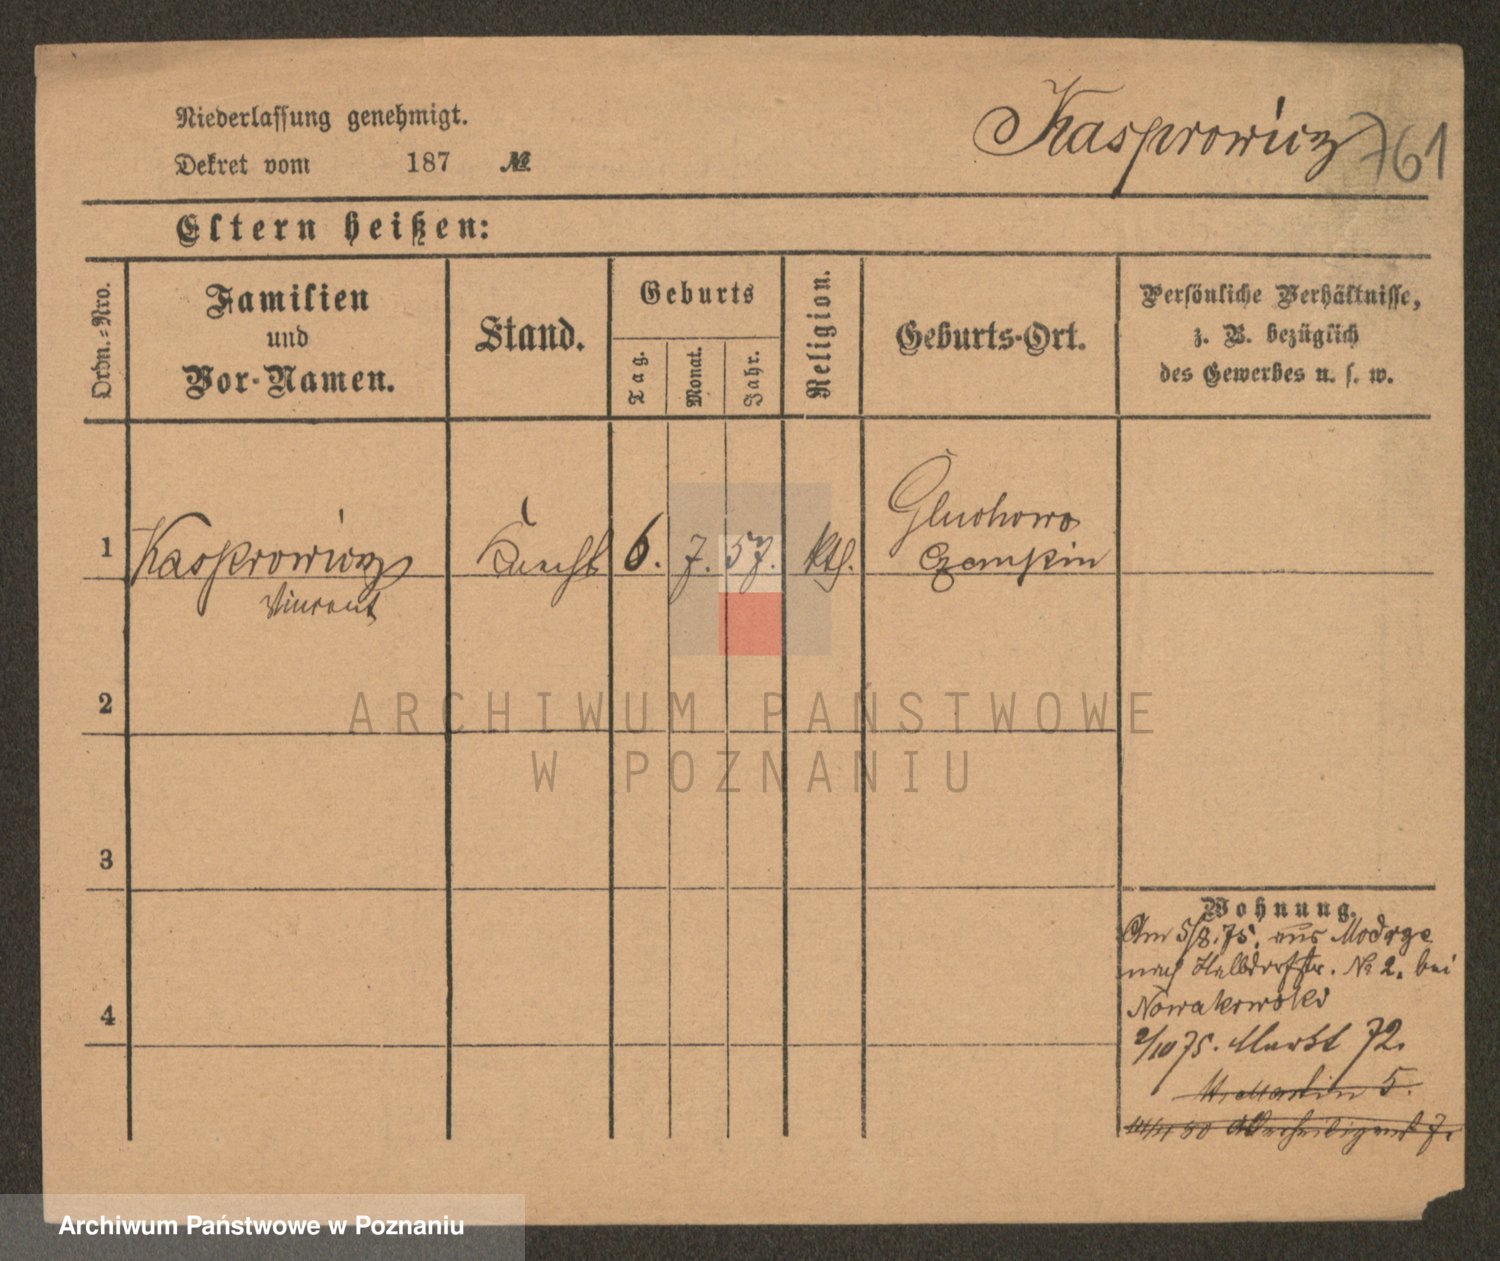 Niederlassung genehmigt.
Kasprowicz 761
Dekret vom 187 №
Eltern heißen:
Ordn.=Nro.
Familien
und
Vor-Namen.
Stand.
Geburts
Tag.
Monat.
Jahr.
Religion.
Geburts-Ort.
Persönliche Verhältnisse,
z. B. bezüglich
des Gewerbes u. s. w.
1
Kasprowicz
Vincent
Knecht
6.
7.
57.
kth.
Gluchowo
Czempin
2
3
4
Wohnung.
Am 5/8.75. aus Modrze
nach Halbdorfstr. № 2. bei
Nowakowski
2/10 75. Markt 72.
St. Martin 5.
80 Allerheiligenst 7.
ARCHIWUM PAŃSTWOWE
W POZNANIU
Archiwum Państwowe w Poznaniu